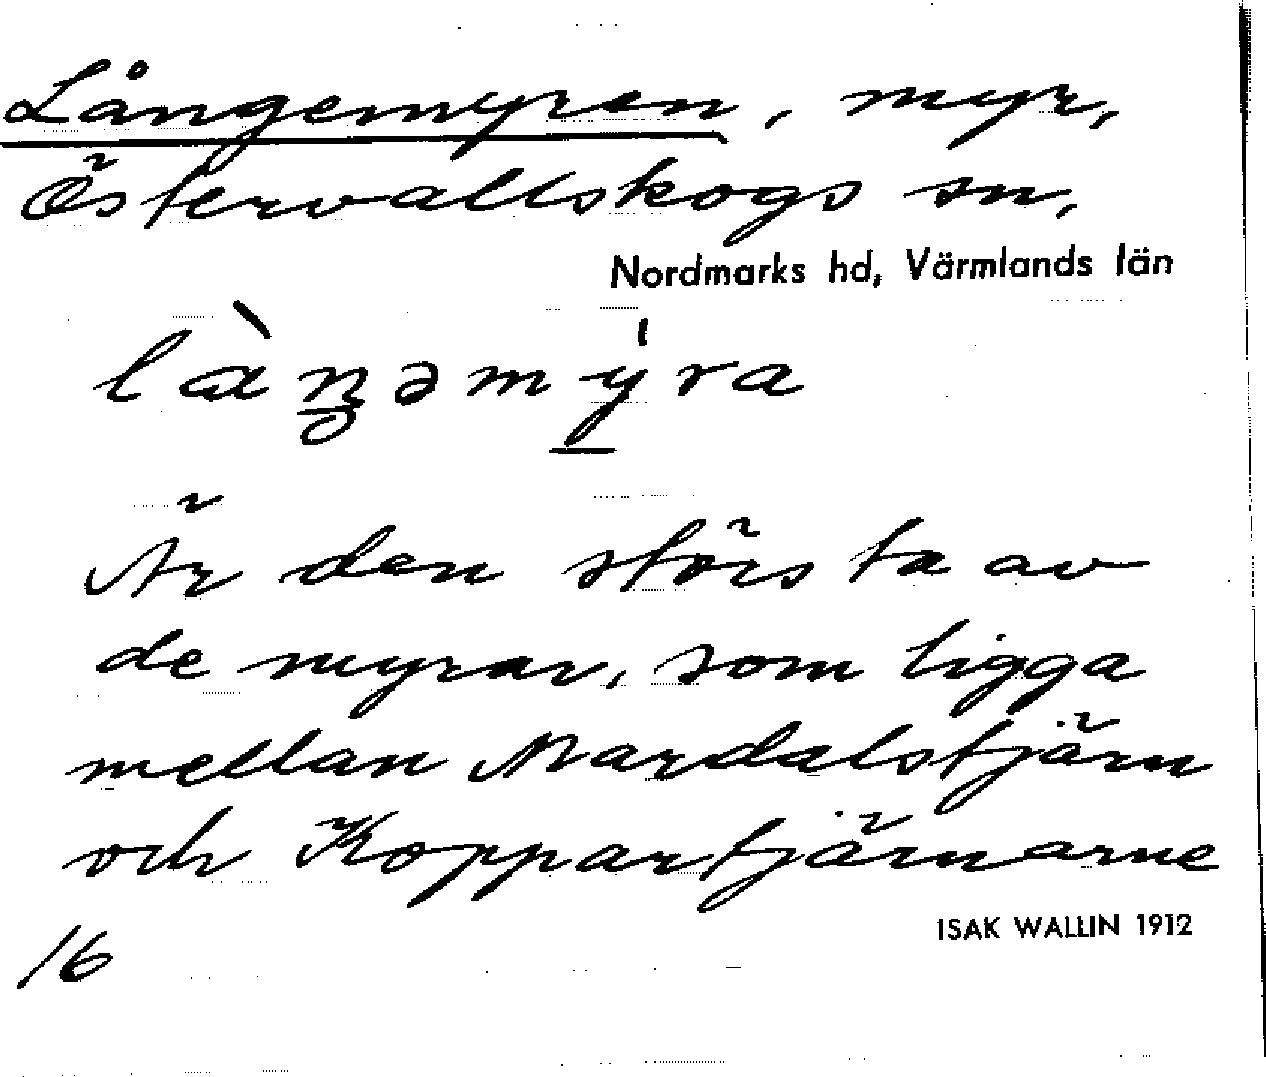 Långemyren, myr,
Östervallskogs sn,
Nordmarks hd, Värmlands län
là̀ŋəmýra
Är den största av
de myrar, som ligga
mellan Mardalstjärn
och Koppartjärnarne
16
ISAK WALLIN 1912